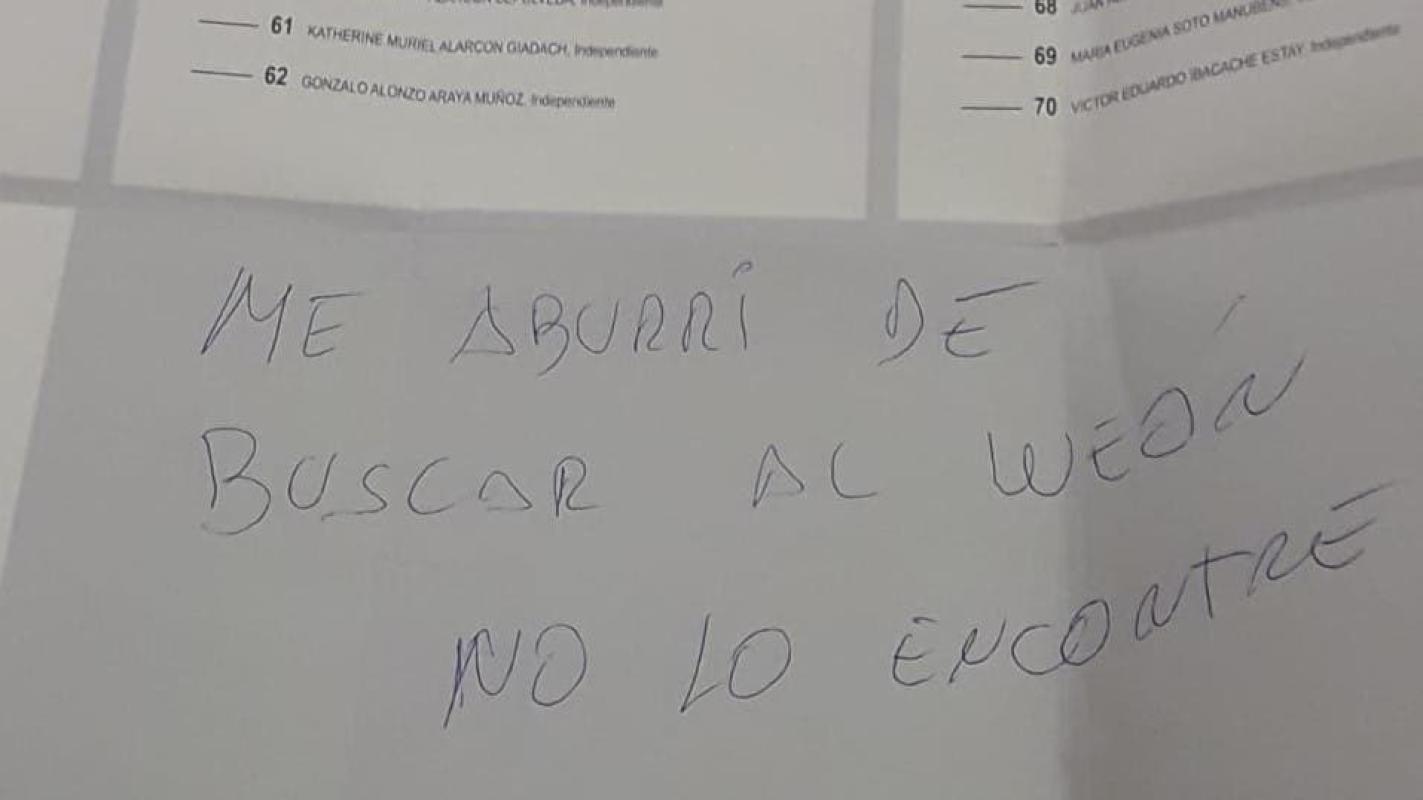 Independiente
61 KATHERINE MURIEL ALARCON GIADACH, Independiente
62 GONZALO ALONZO ARAYA MUÑOZ, Independiente
68
69 MARIA EUGENIA SOTO
70 VICTOR EDUARDO IBACACHE ESTAY, Independiente
ME ABURRÍ DE
BUSCAR AL WEÓN
NO LO ENCONTRÉ